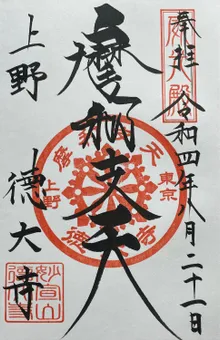 奉拝 令和四年八月二十一日
摩利支天
上野 徳大寺
東京
上野